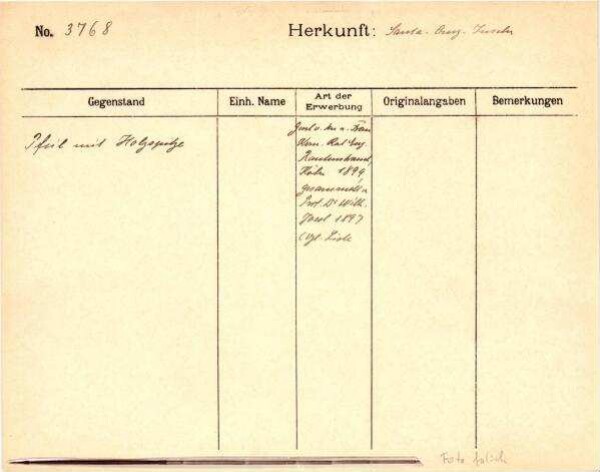 No. 3768
Herkunft: Santa-Cruz-Inseln
Gegenstand
Einh. Name
Art der Erwerbung
Originalangaben
Bemerkungen
Pfeil mit Holzspitze
Rautenstrauch
Köln 1899
gesammelt v.
Prof. Dr Wilh.
Joest 1897
(vgl. Liste
Foto falsch